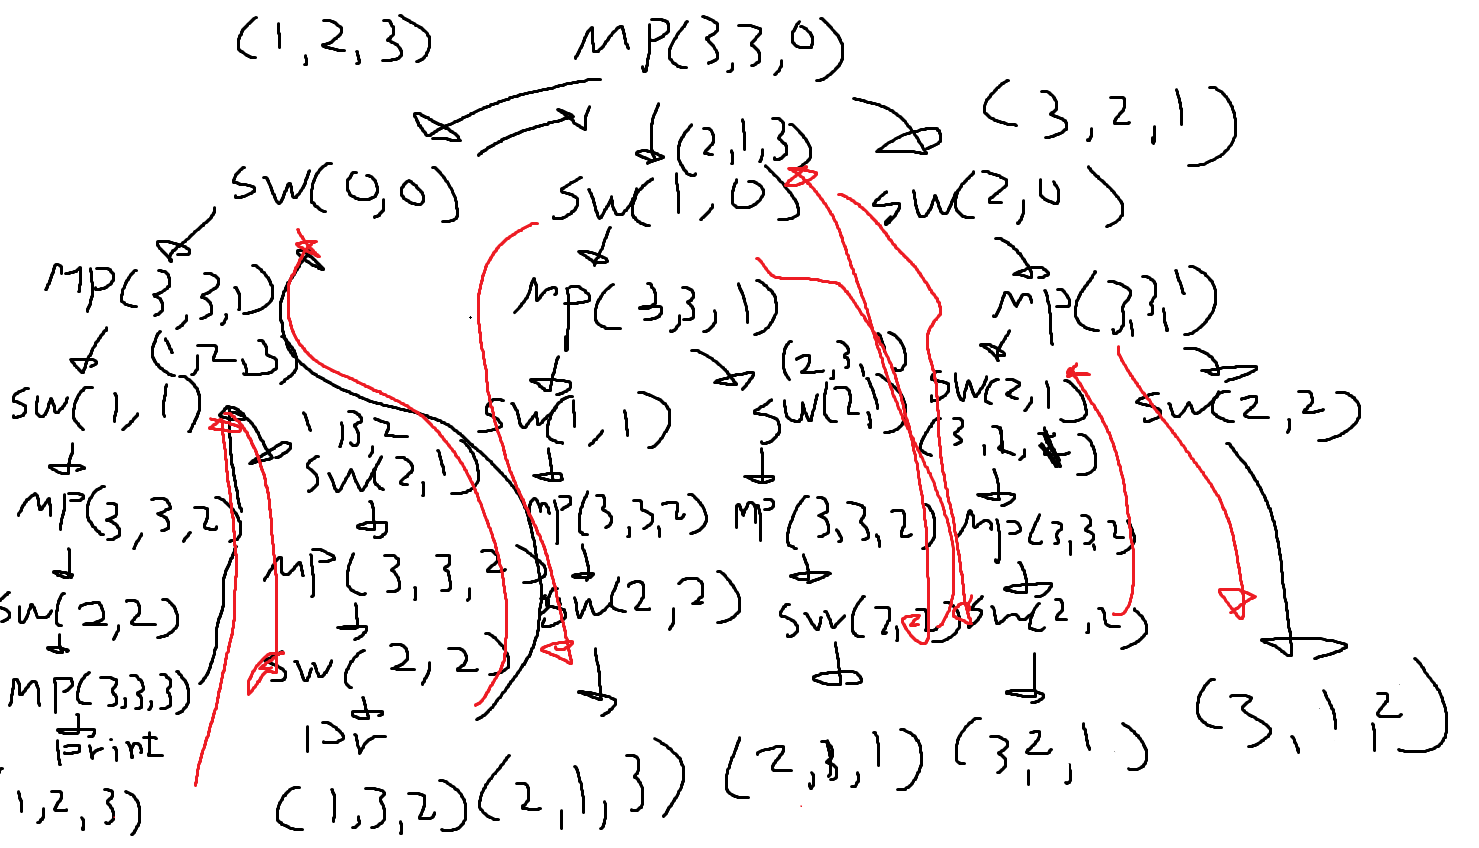 (1,2,3) MP(3,3,0)
(3,2,1)
(2,1,3)
SW(0,0) SW(1,0) SW(2,0)
MP(3,3,1) MP(3,3,1) MP(3,3,1)
(1,2,3) (2,3,1)
SW(1,1) SW(1,1) SW(2,1) SW(2,1) SW(2,2)
1,3,2 (3,2,1)
SW(2,1)
MP(3,3,2) MP(3,3,2) MP(3,3,2) MP(3,3,2)
MP(3,3,2)
SW(2,2) SW(2,2) SW(2,2) SW(2,2)
SW(2,2)
MP(3,3,3)
print Pr
1,2,3) (1,3,2) (2,1,3) (2,3,1) (3,2,1) (3,1,2)